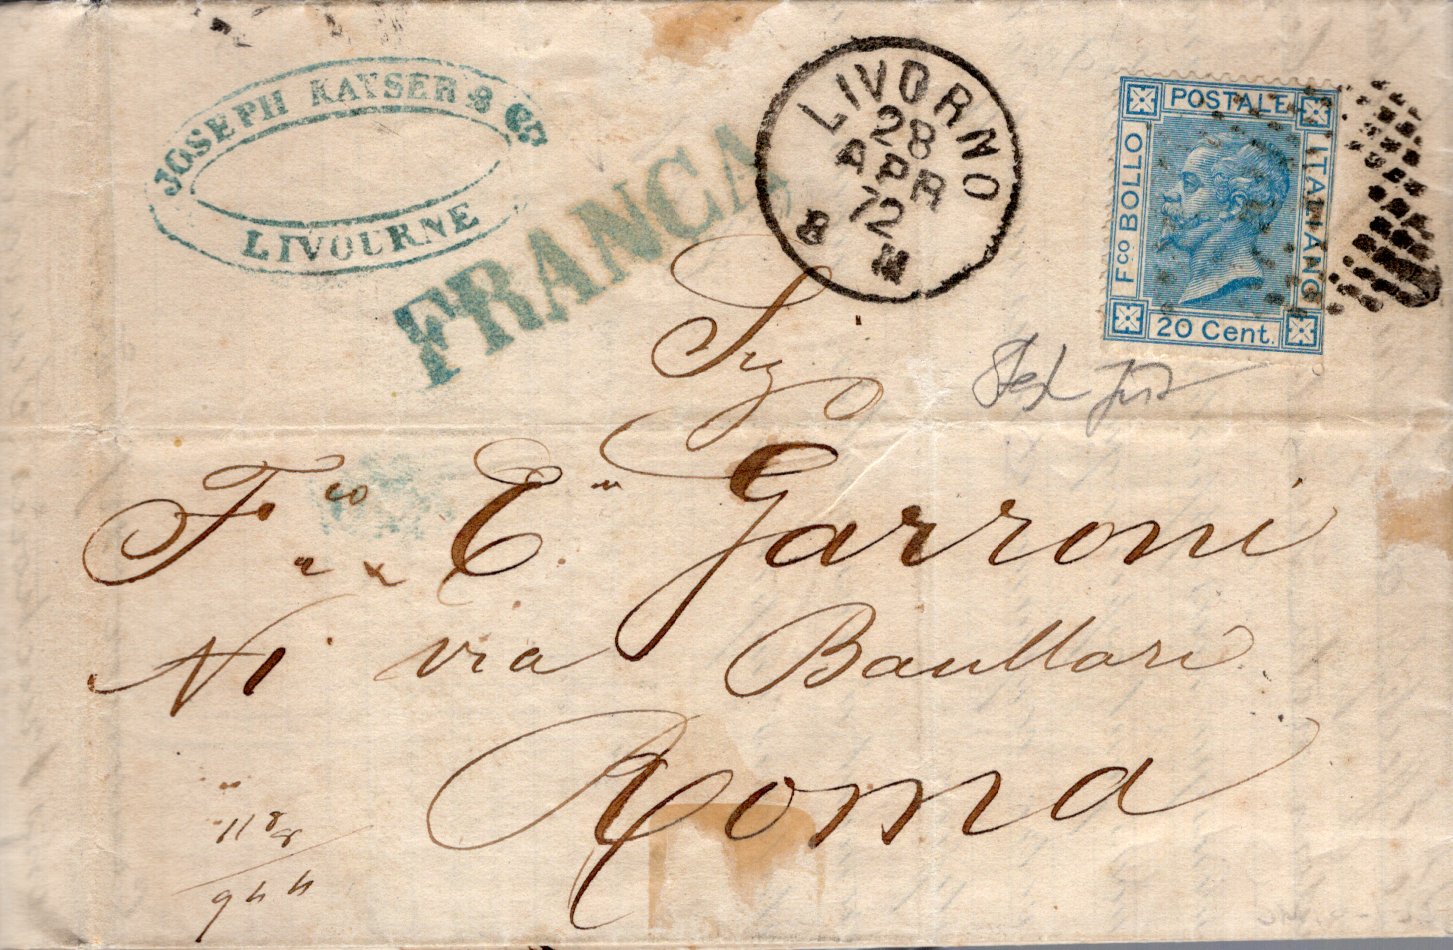 JOSEPH KAYSER & Co
LIVOURNE
FRANCA
LIVORNO
28
APR
72
8 M
POSTALE
Fco BOLLO
ITALIANO
20 Cent.
Sig
Fco E. Garroni
N1 via Baullari
Roma
944